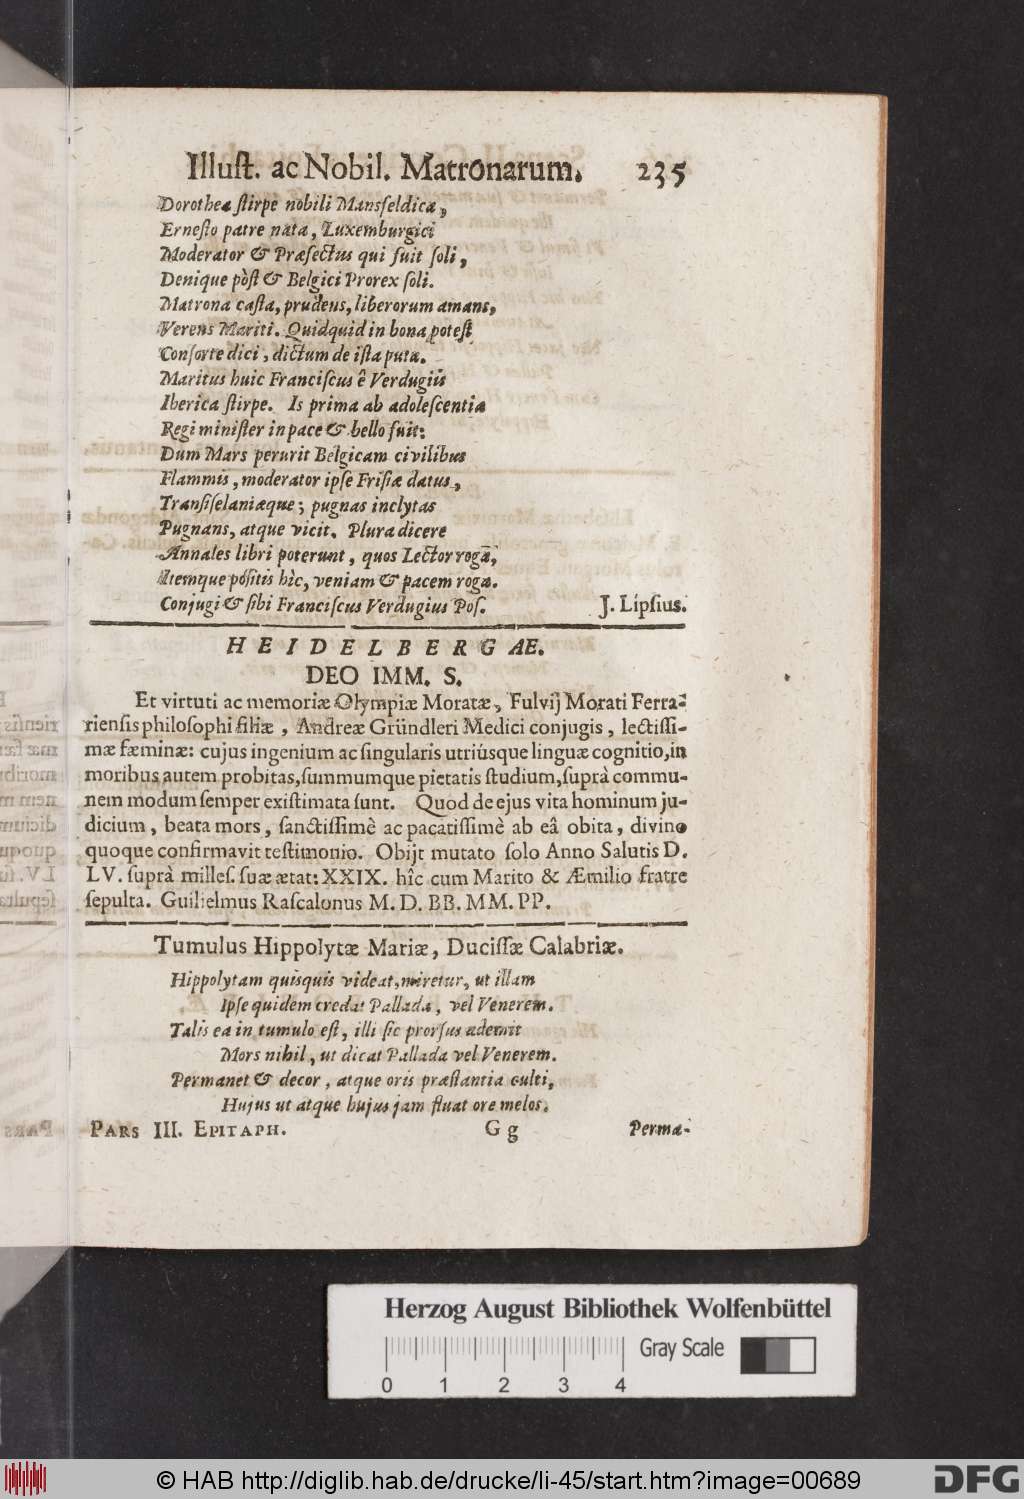 Illust. ac Nobil. Matronarum. 235
Dorotheæ stirpe nobili Mansfeldica,
Ernesto patre nata, Luxemburgici
Moderator & Præfectus qui fuit soli,
Denique pòst & Belgici Prorex soli.
Matrona casta, prudens, liberorum amans,
Verens Mariti. Quidquid in bona potest
Consorte dici, dictum de ista puta.
Maritus huic Franciscus ê Verdugiûs
Iberica stirpe. Is prima ab adolescentia
Regi minister in pace & bello fuit:
Dum Mars perurit Belgicam civilibus
Flammis, moderator ipse Frisiæ datus,
Transiselaniæque; pugnas inclytas
Pugnans, atque vicit. Plura dicere
Annales libri poterunt, quos Lector rogã,
Itemque pósitis hìc, veniam & pacem roga.
Conjugi & sibi Franciscus Verdugius Pos. J. Lipsius.
HEIDELBERGÆ.
DEO IMM. S.
Et virtuti ac memoriæ Olympiæ Moratæ, Fulvij Morati Ferra-
riensis philosophi filiæ, Andreæ Gründleri Medici conjugis, lectissi-
mæ fæminæ: cujus ingenium ac singularis utriúsque linguæ cognitio, in
moribus autem probitas, summumque pietatis studium, suprà commu-
nem modum semper existimata sunt. Quod de ejus vita hominum ju-
dicium, beata mors, sanctissimè ac pacatissimè ab eâ obita, divino
quoque confirmavit testimonio. Obijt mutato solo Anno Salutis D.
LV. suprà milles. suæ ætat: XXIX. hîc cum Marito & Æmilio fratre
sepulta. Guilielmus Rascalonus M. D. BB. MM. PP.
Tumulus Hippolytæ Mariæ, Ducissæ Calabriæ.
Hippolytam quisquis videat, miretur, ut illam
Ipse quidem credat Pallada, vel Venerem.
Talis ea in tumulo est, illi sic prorsus ademit
Mors nihil, ut dicat Pallada vel Venerem.
Permanet & decor, atque oris præstantia culti,
Hujus ut atque hujus jam fluat ore melos.
PARS III. EPITAPH. Gg Perma-
Herzog August Bibliothek Wolfenbüttel
0 1 2 3 4 Gray Scale
© HAB http://diglib.hab.de/drucke/li-45/start.htm?image=00689
DFG